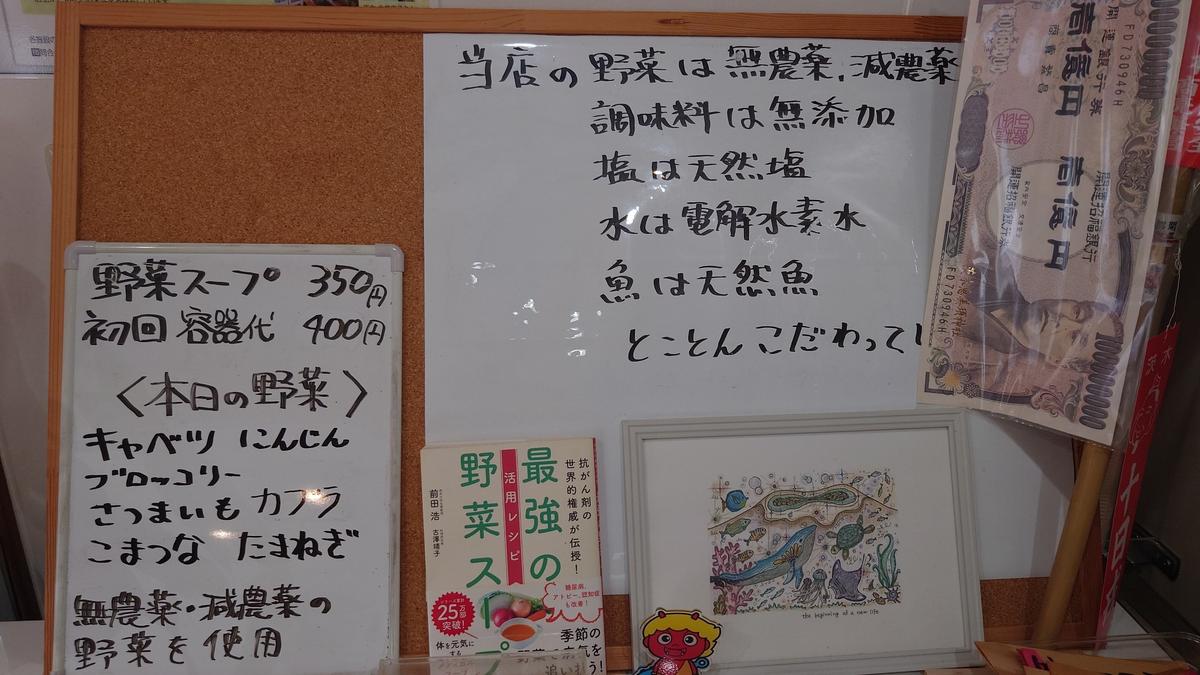 当店の野菜は無農薬、減農薬
調味料は無添加
塩は天然塩
水は電解水素水
魚は天然魚
とことんこだわってい
野菜スープ 350円
初回 容器代 400円
〈本日の野菜〉
キャベツ にんじん
ブロッコリー
さつまいも カブラ
こまつな たまねぎ
無農薬・減農薬の
野菜を使用
抗がん剤の
世界的権威が伝授!
最強の
野菜スープ
活用レシピ
前田 浩
古澤靖子
糖尿病、
アトピー、認知症
も改善!
25万部
突破!
体を元気に
する
季節の
the beginning of a new life
開運銀行券
壱億円
FD730946H
壱億円
開運招福銀行
開運招福銀行券
FD730946H
十日